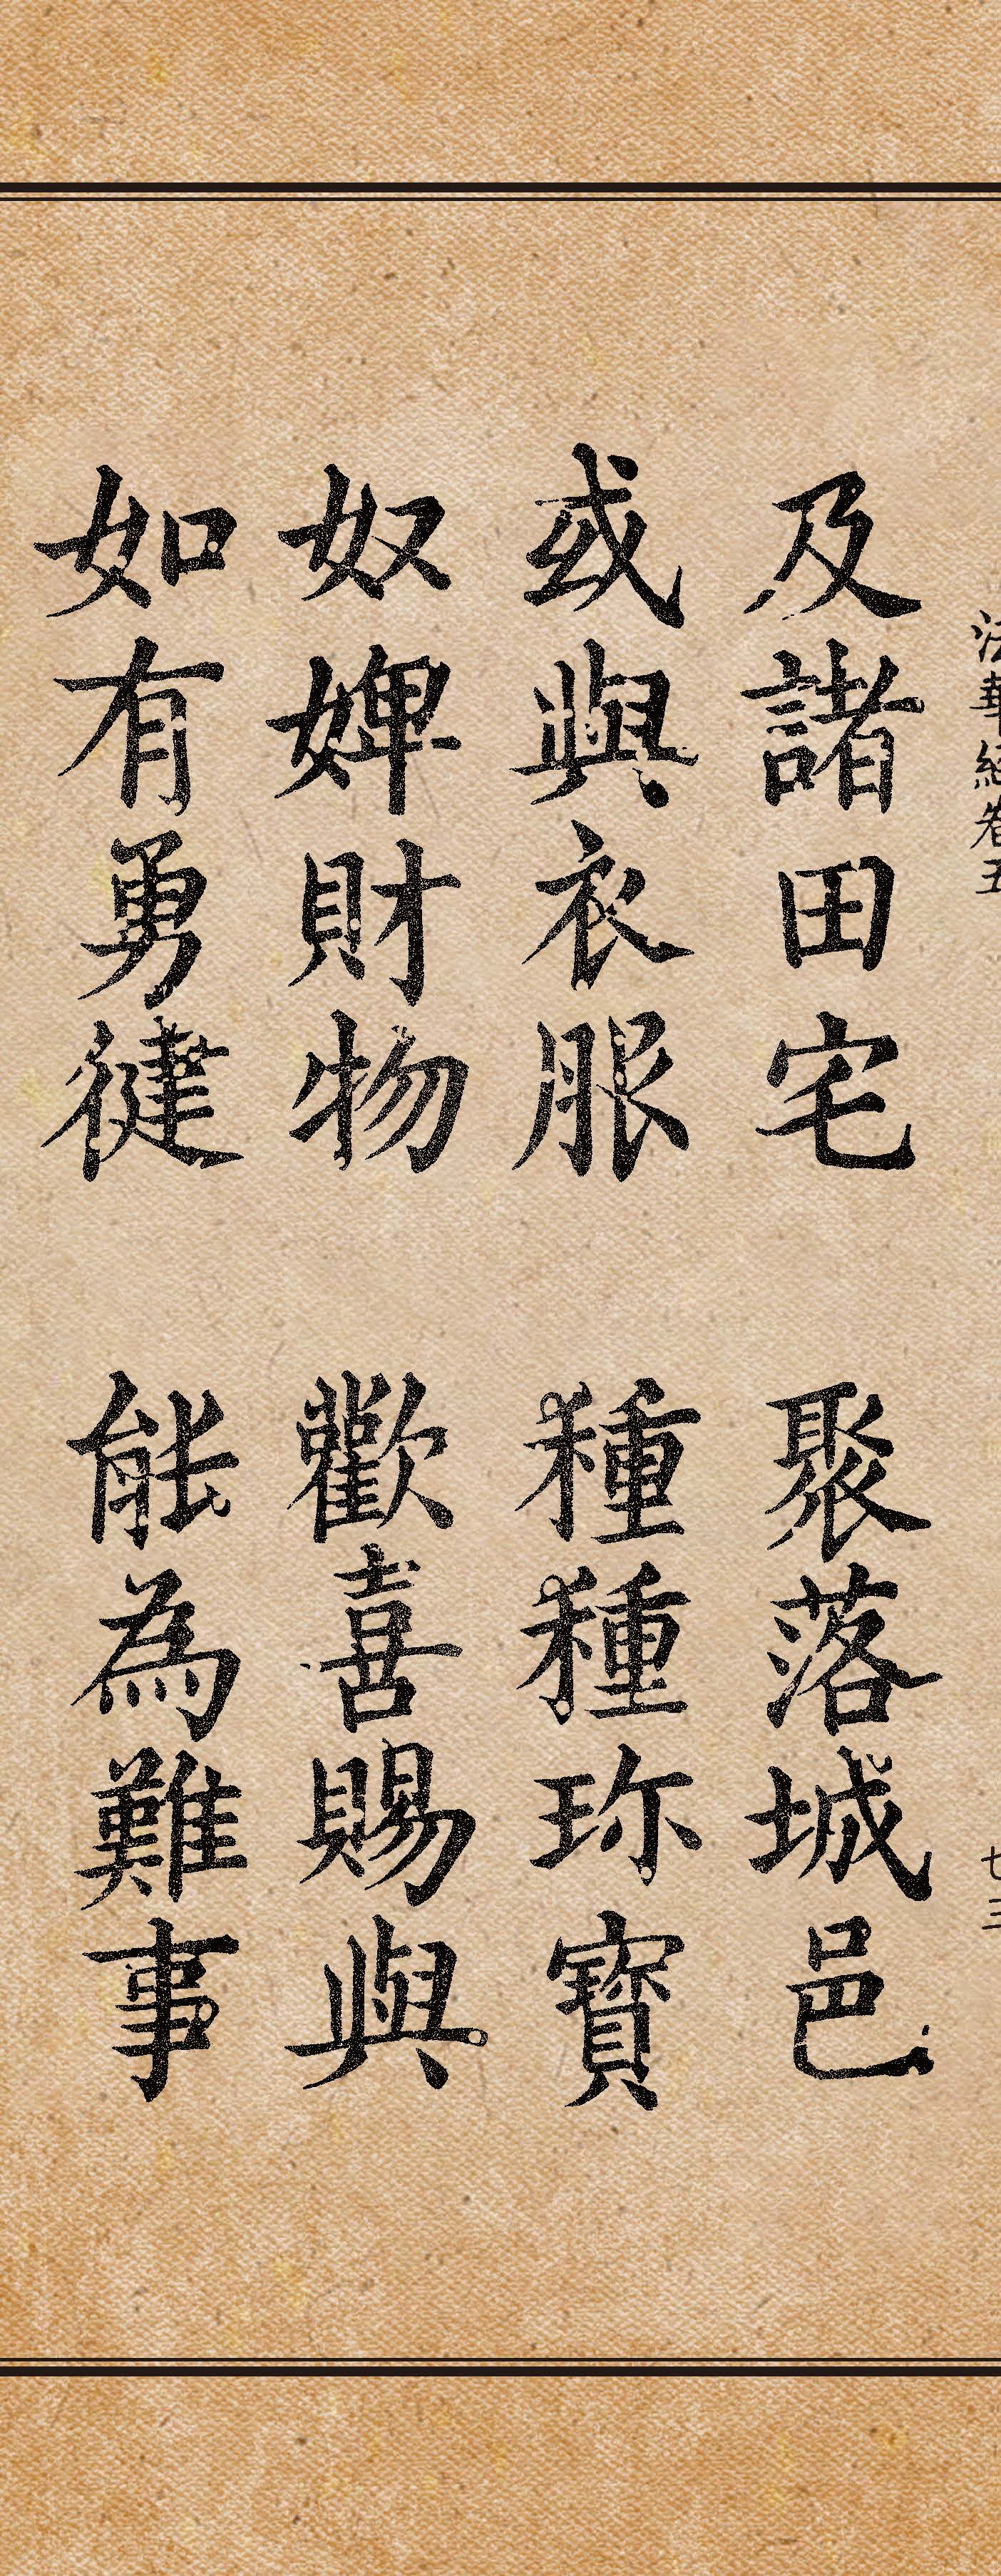 法華經卷五 七三
及諸田宅 聚落城邑
或與衣服 種種珎寶
奴婢財物 歡喜賜與
如有勇健 能為難事